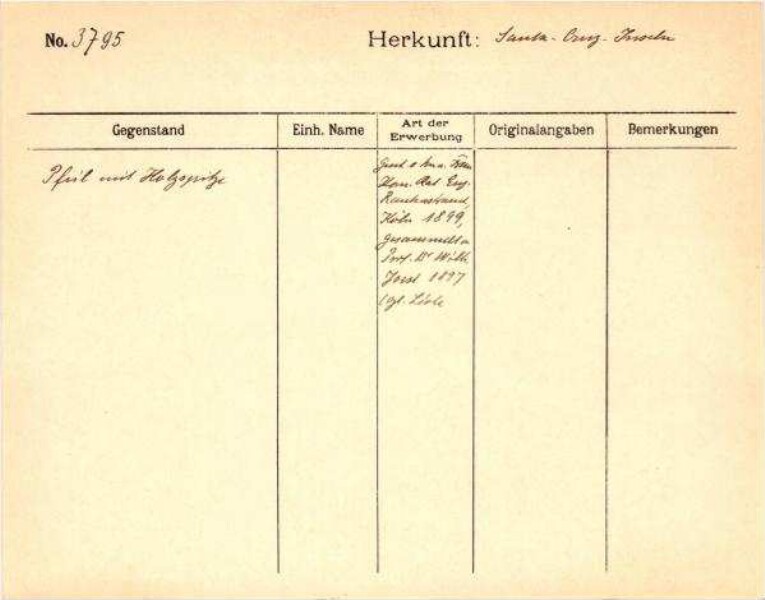 No. 3795
Herkunft: Santa-Cruz-Inseln
Gegenstand
Einh. Name
Art der Erwerbung
Originalangaben
Bemerkungen
Pfeil mit Holzspitze
Gesch. v. Frau
Kom. Rat Eug.
Rautenstrauch,
Köln 1899,
gesammelt v.
Prof. Dr Wilh.
Joest 1897
vgl. Liste